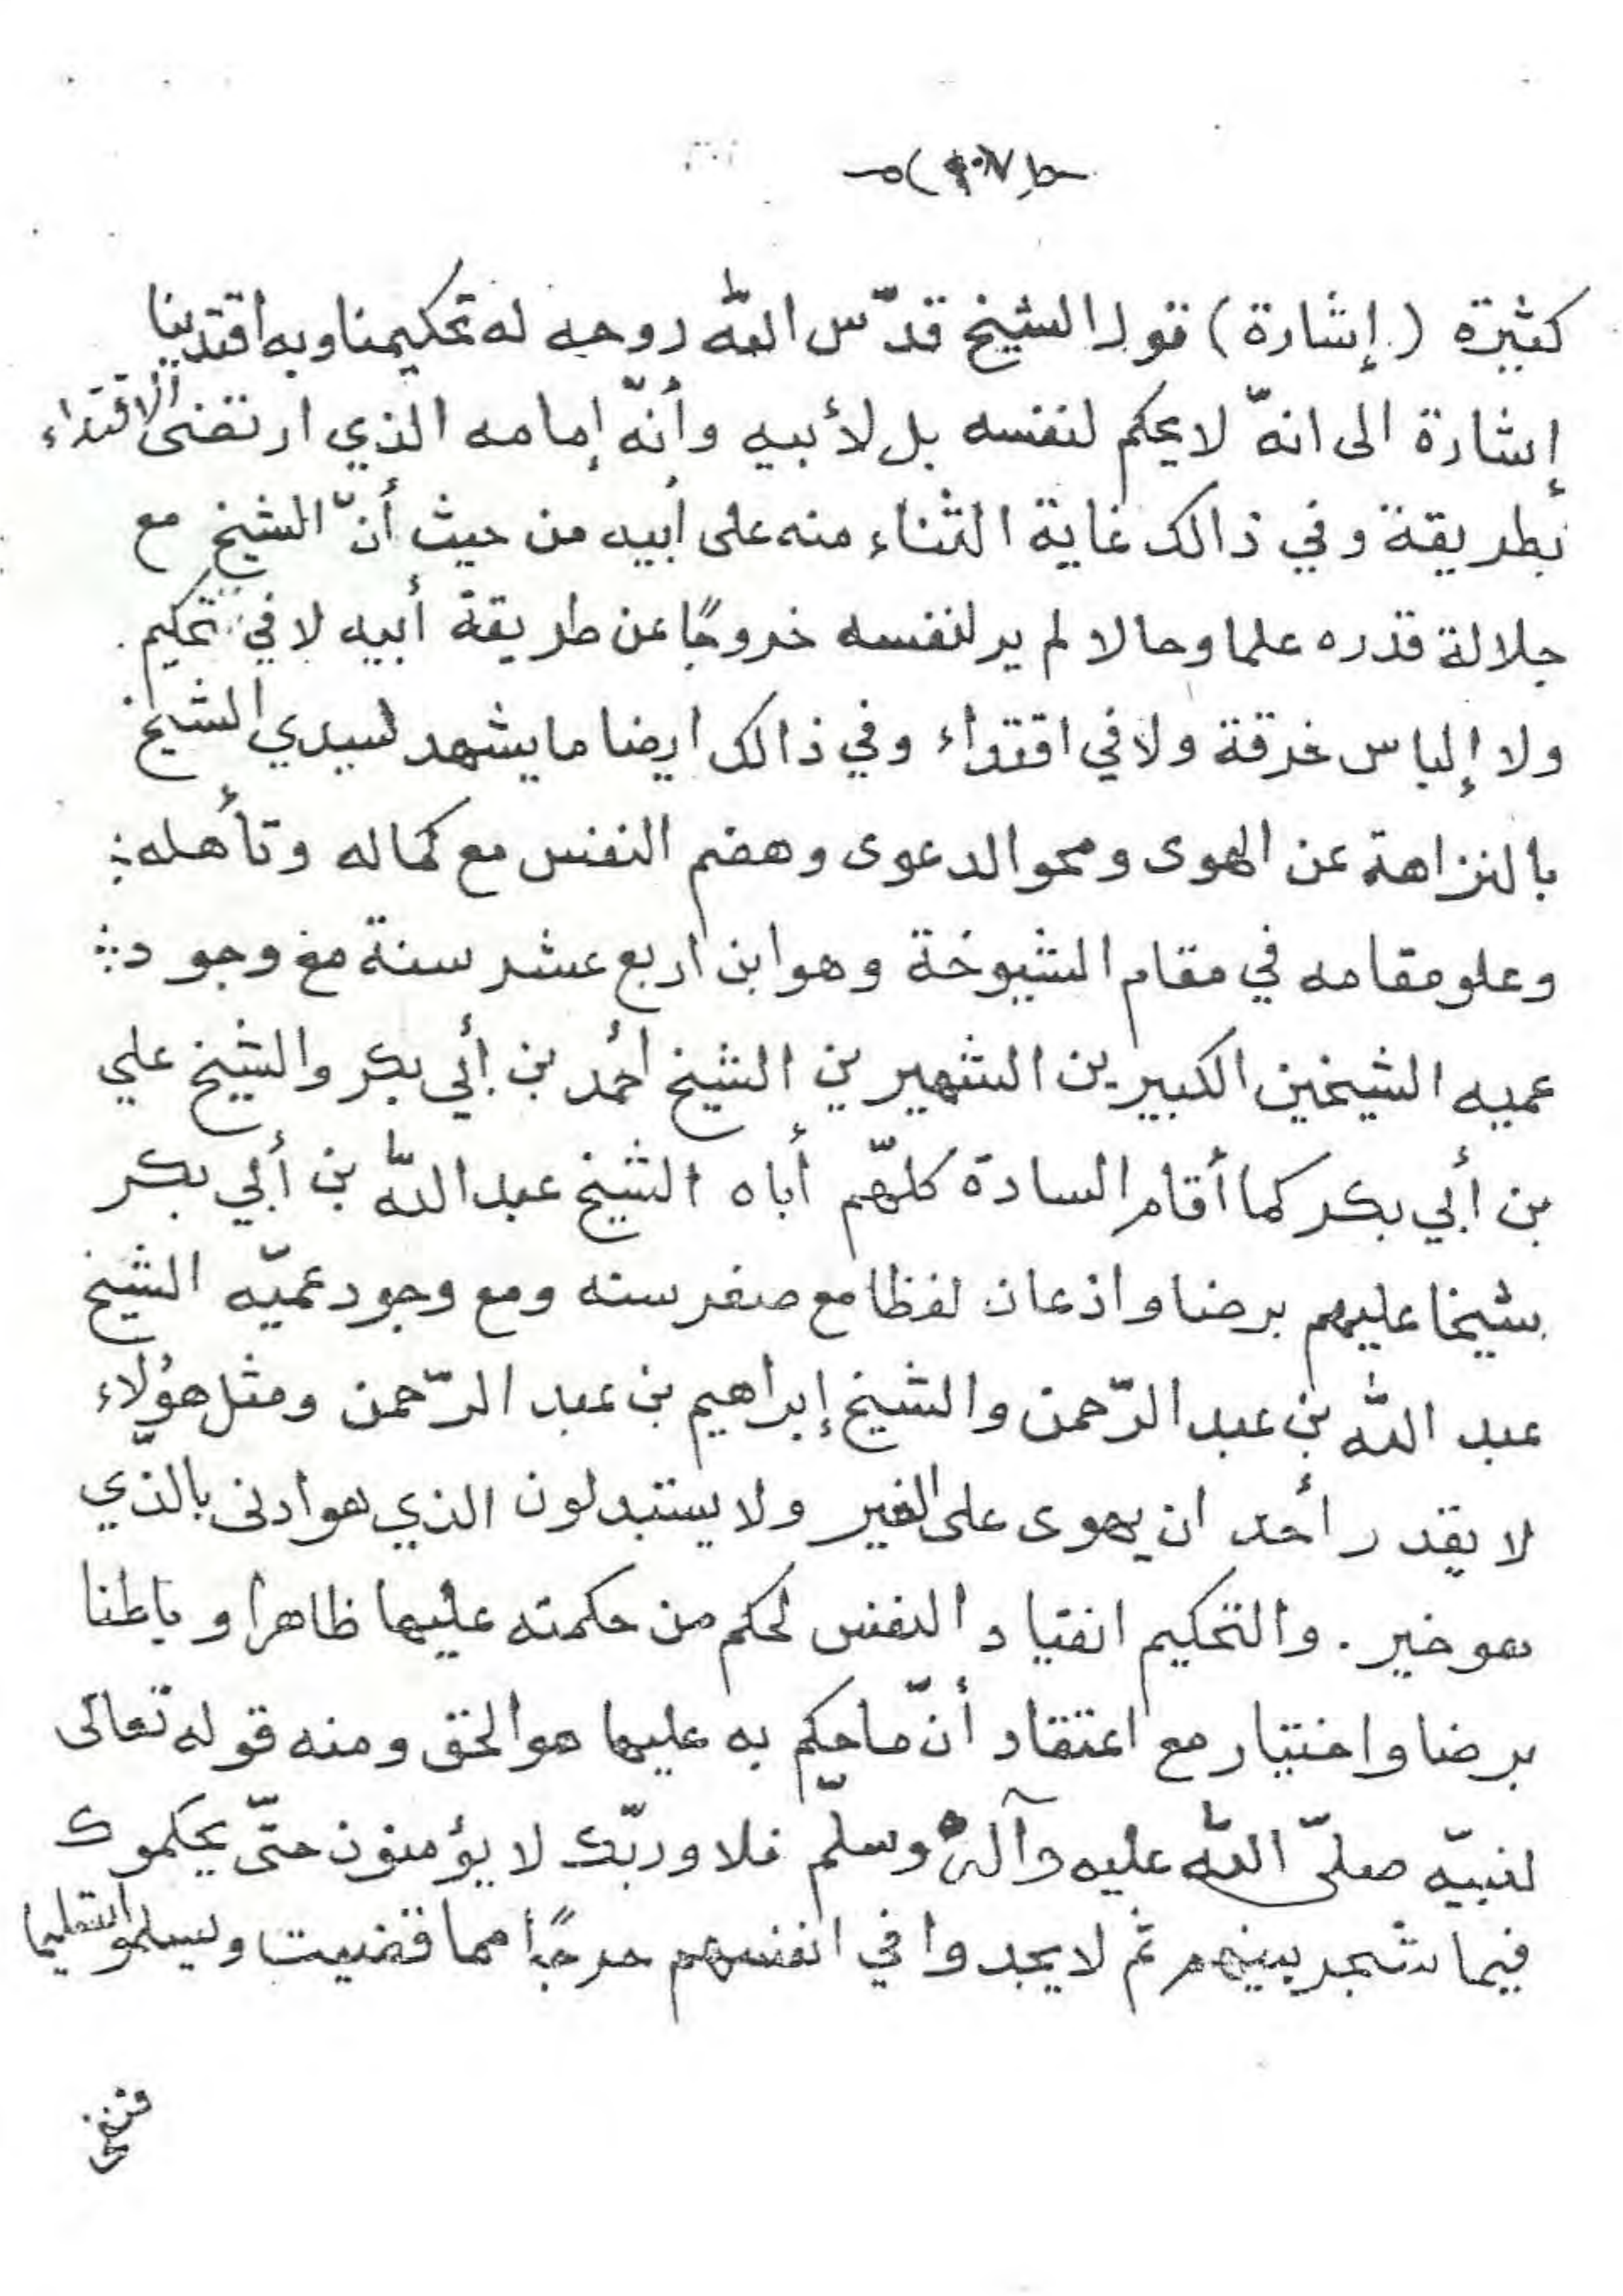 كثيرة (إشارة) قول الشيخ قدّس اللّه روحه له تحكيمنا وبه اقتدينا
إشارة الى انّه لا يحكم لنفسه بل لأبيه وأنّه إمامه الذي ارتضى الاقتداء
بطريقة وفي ذالك غاية الثناء منه على أبيه من حيث أنّ الشيخ مع
جلالة قدره علما وحالا لم ير لنفسه خروجًا عن طريقة أبيه لا في تحكيم
ولا إلباس خرقة ولا في اقتداء وفي ذالك ايضا ما يشهد لسيدي الشيخ
بالنزاهة عن الهوى ومحو الدعوى وهضم النفس مع كماله وتأهله
وعلو مقامه في مقام الشيوخة وهو ابن اربع عشر سنة مع وجود
عميه الشيخين الكبيرين الشهيرين الشيخ أحمد بن أبي بكر والشيخ علي
بن أبي بكر كما أقام السادة كلّهم أباه الشيخ عبد اللّه بن أبي بكر
شيخا عليهم برضا واذعان لفظا مع صغر سنه ومع وجود عميّه الشيخ
عبد اللّه بن عبد الرّحمن والشيخ إبراهيم بن عبد الرّحمن ومثل هؤلاء
لا يقدر أحد ان يهوى على الغير ولا يستبدلون الذي هو ادنى بالذّي
هو خير . والتحكيم انقياد النفس لحكم من حكمته عليها ظاهرا وباطنا
برضا واختيار مع اعتقاد أنّ ما حكم به عليها هو الحق ومنه قوله تعالى
لنبيّه صلّى اللّه عليه وآله وسلّم فلا وربّك لا يؤمنون حتّى يحكموك
فيما شجر بينهم ثم لا يجدوا في انفسهم حرجًا مما قضيت ويسلموا تسليما